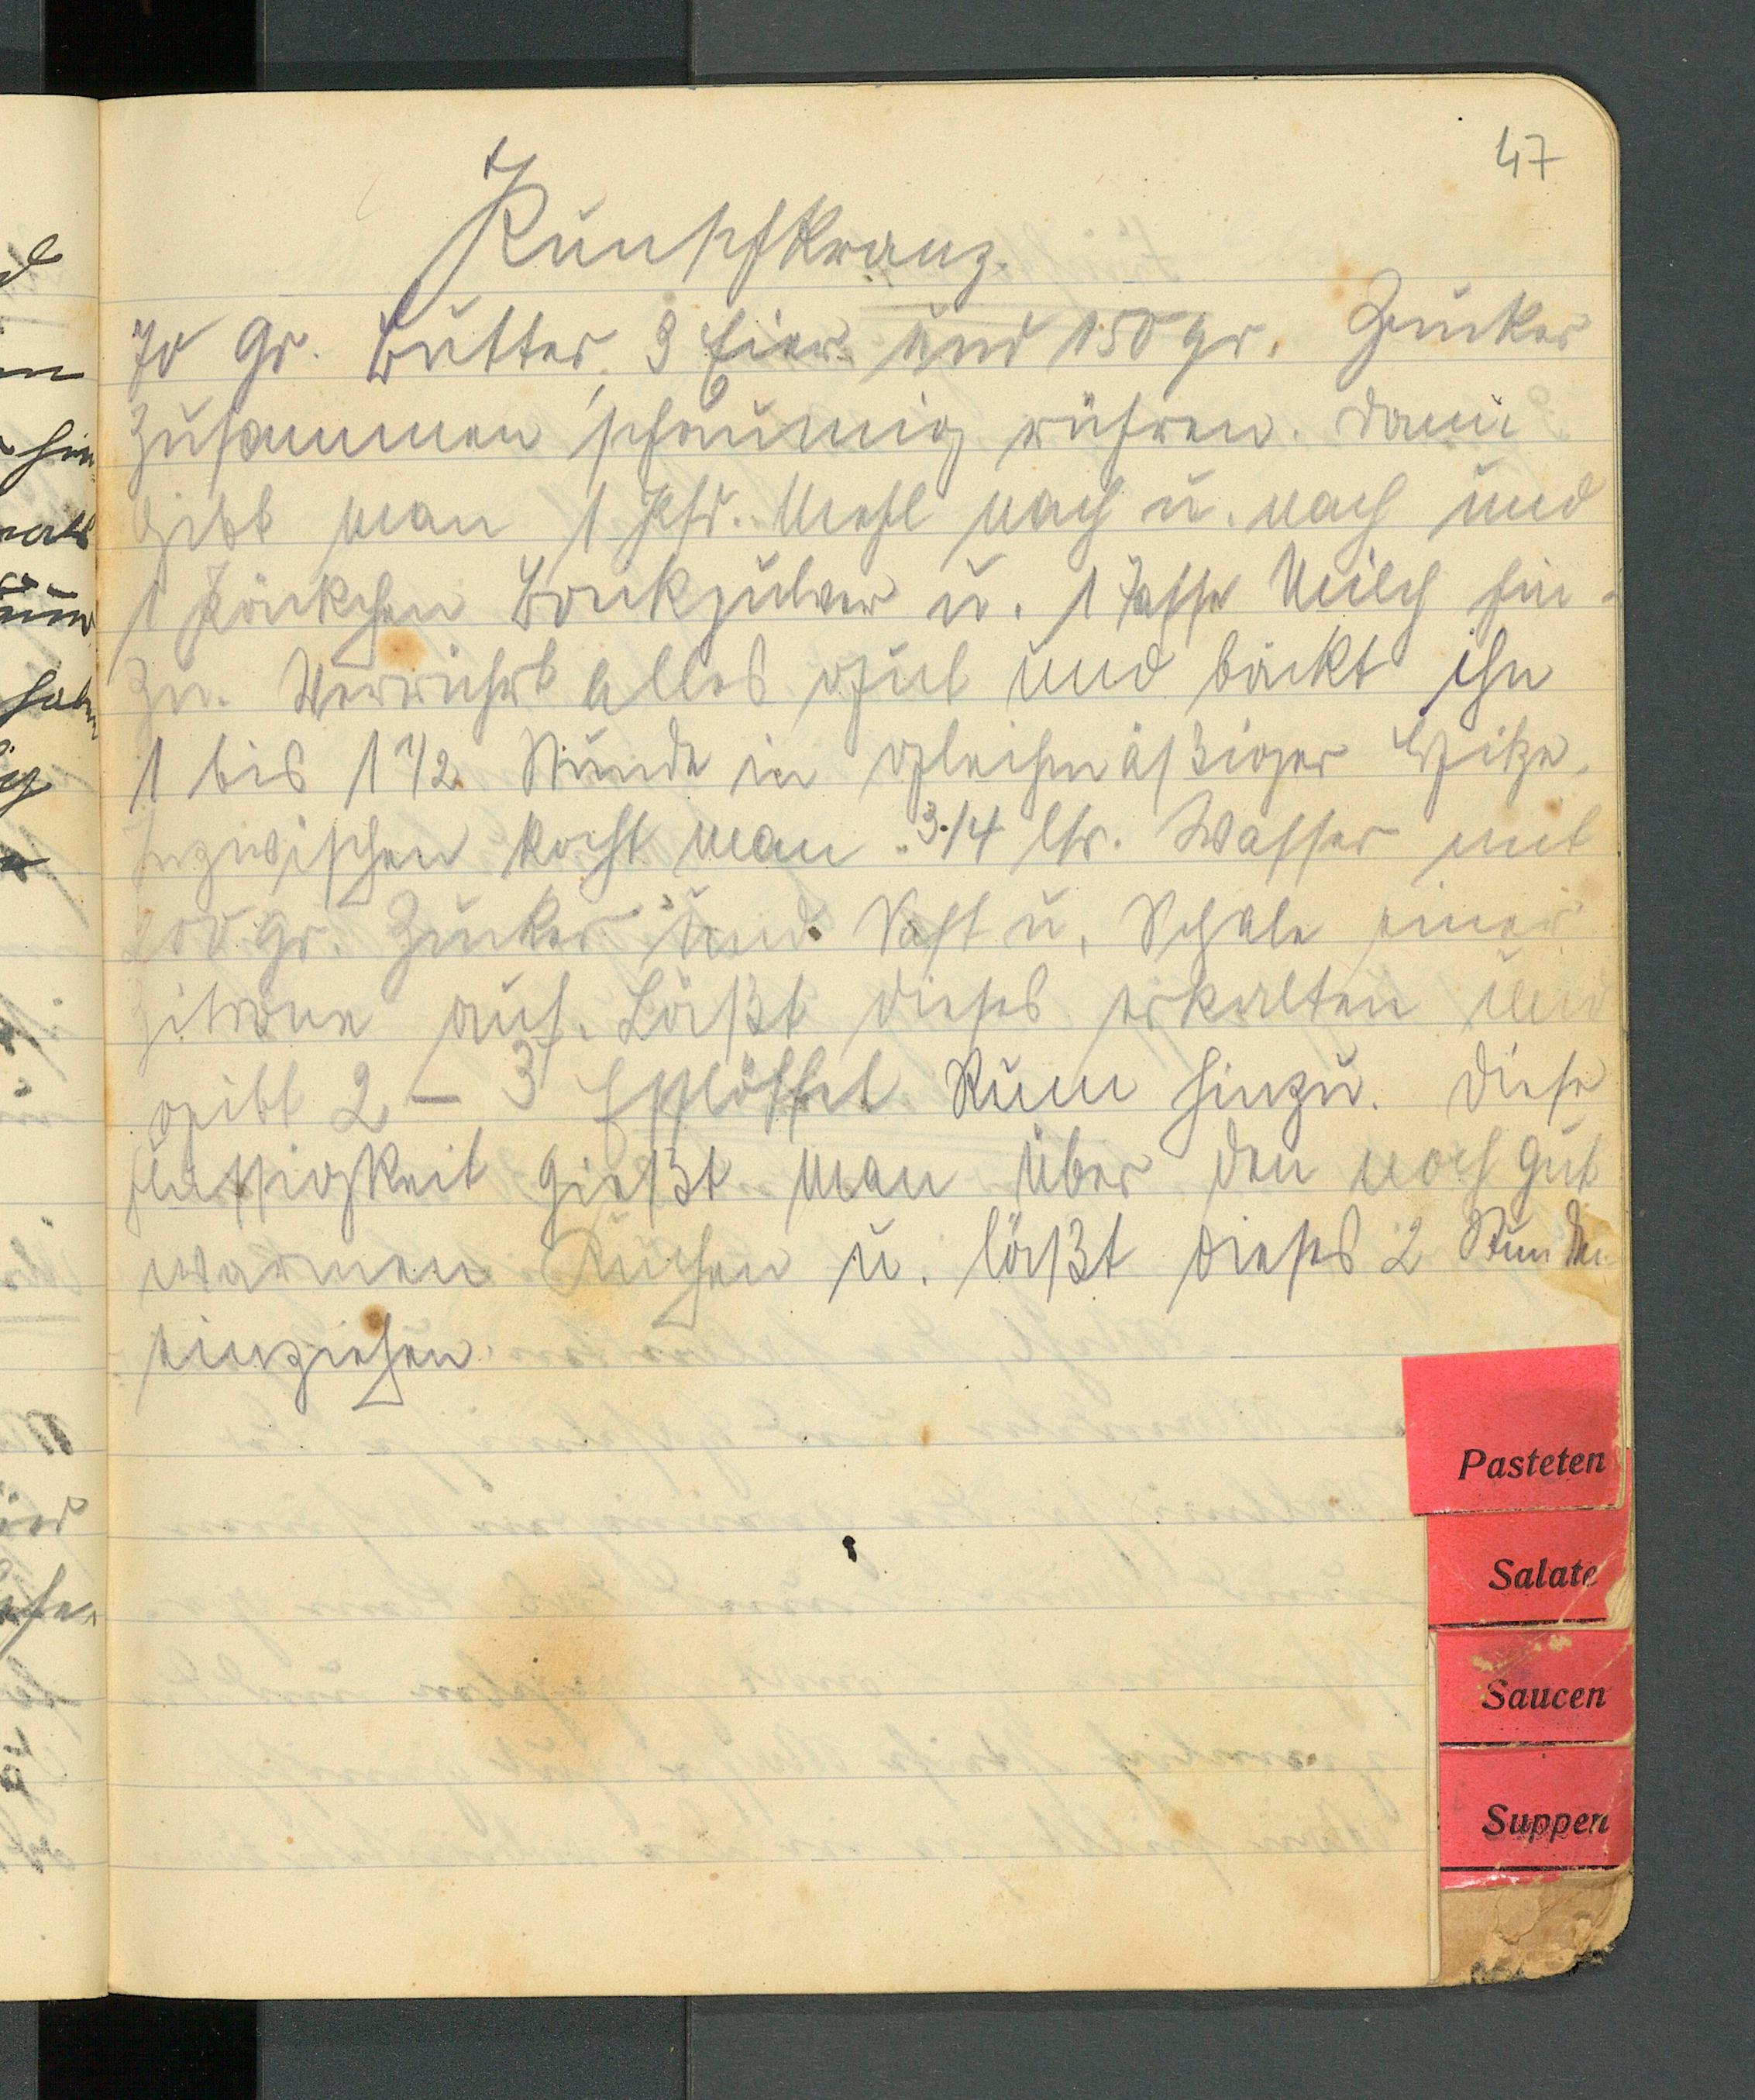 47
Punschkranz.
70 Gr. Butter, 3 Eier und 150 gr. Zucker
zusammen schaumig rühren. Dann
gibt man 1 Pfd. Mehl nach u. nach und
1 Päckchen Backpulver u. 1 Tasse Milch hin-
zu. Verrührt alles gut und bäckt ihn
1 bis 1 1/2 Stunde in gleichmäßiger Hitze.
Inzwischen kocht man 3/4 ltr. Wasser mit
200 gr. Zucker und Saft u. Schale einer
Zitrone auf. Läßt dieses erkalten und
gibt 2 – 3 Eßlöffel Rum hinzu. Diese
Flüssigkeit gießt man über den noch gut
warmen Kuchen u. läßt dieses 2 Stunden
einziehen.
Pasteten
Salate
Saucen
Suppen